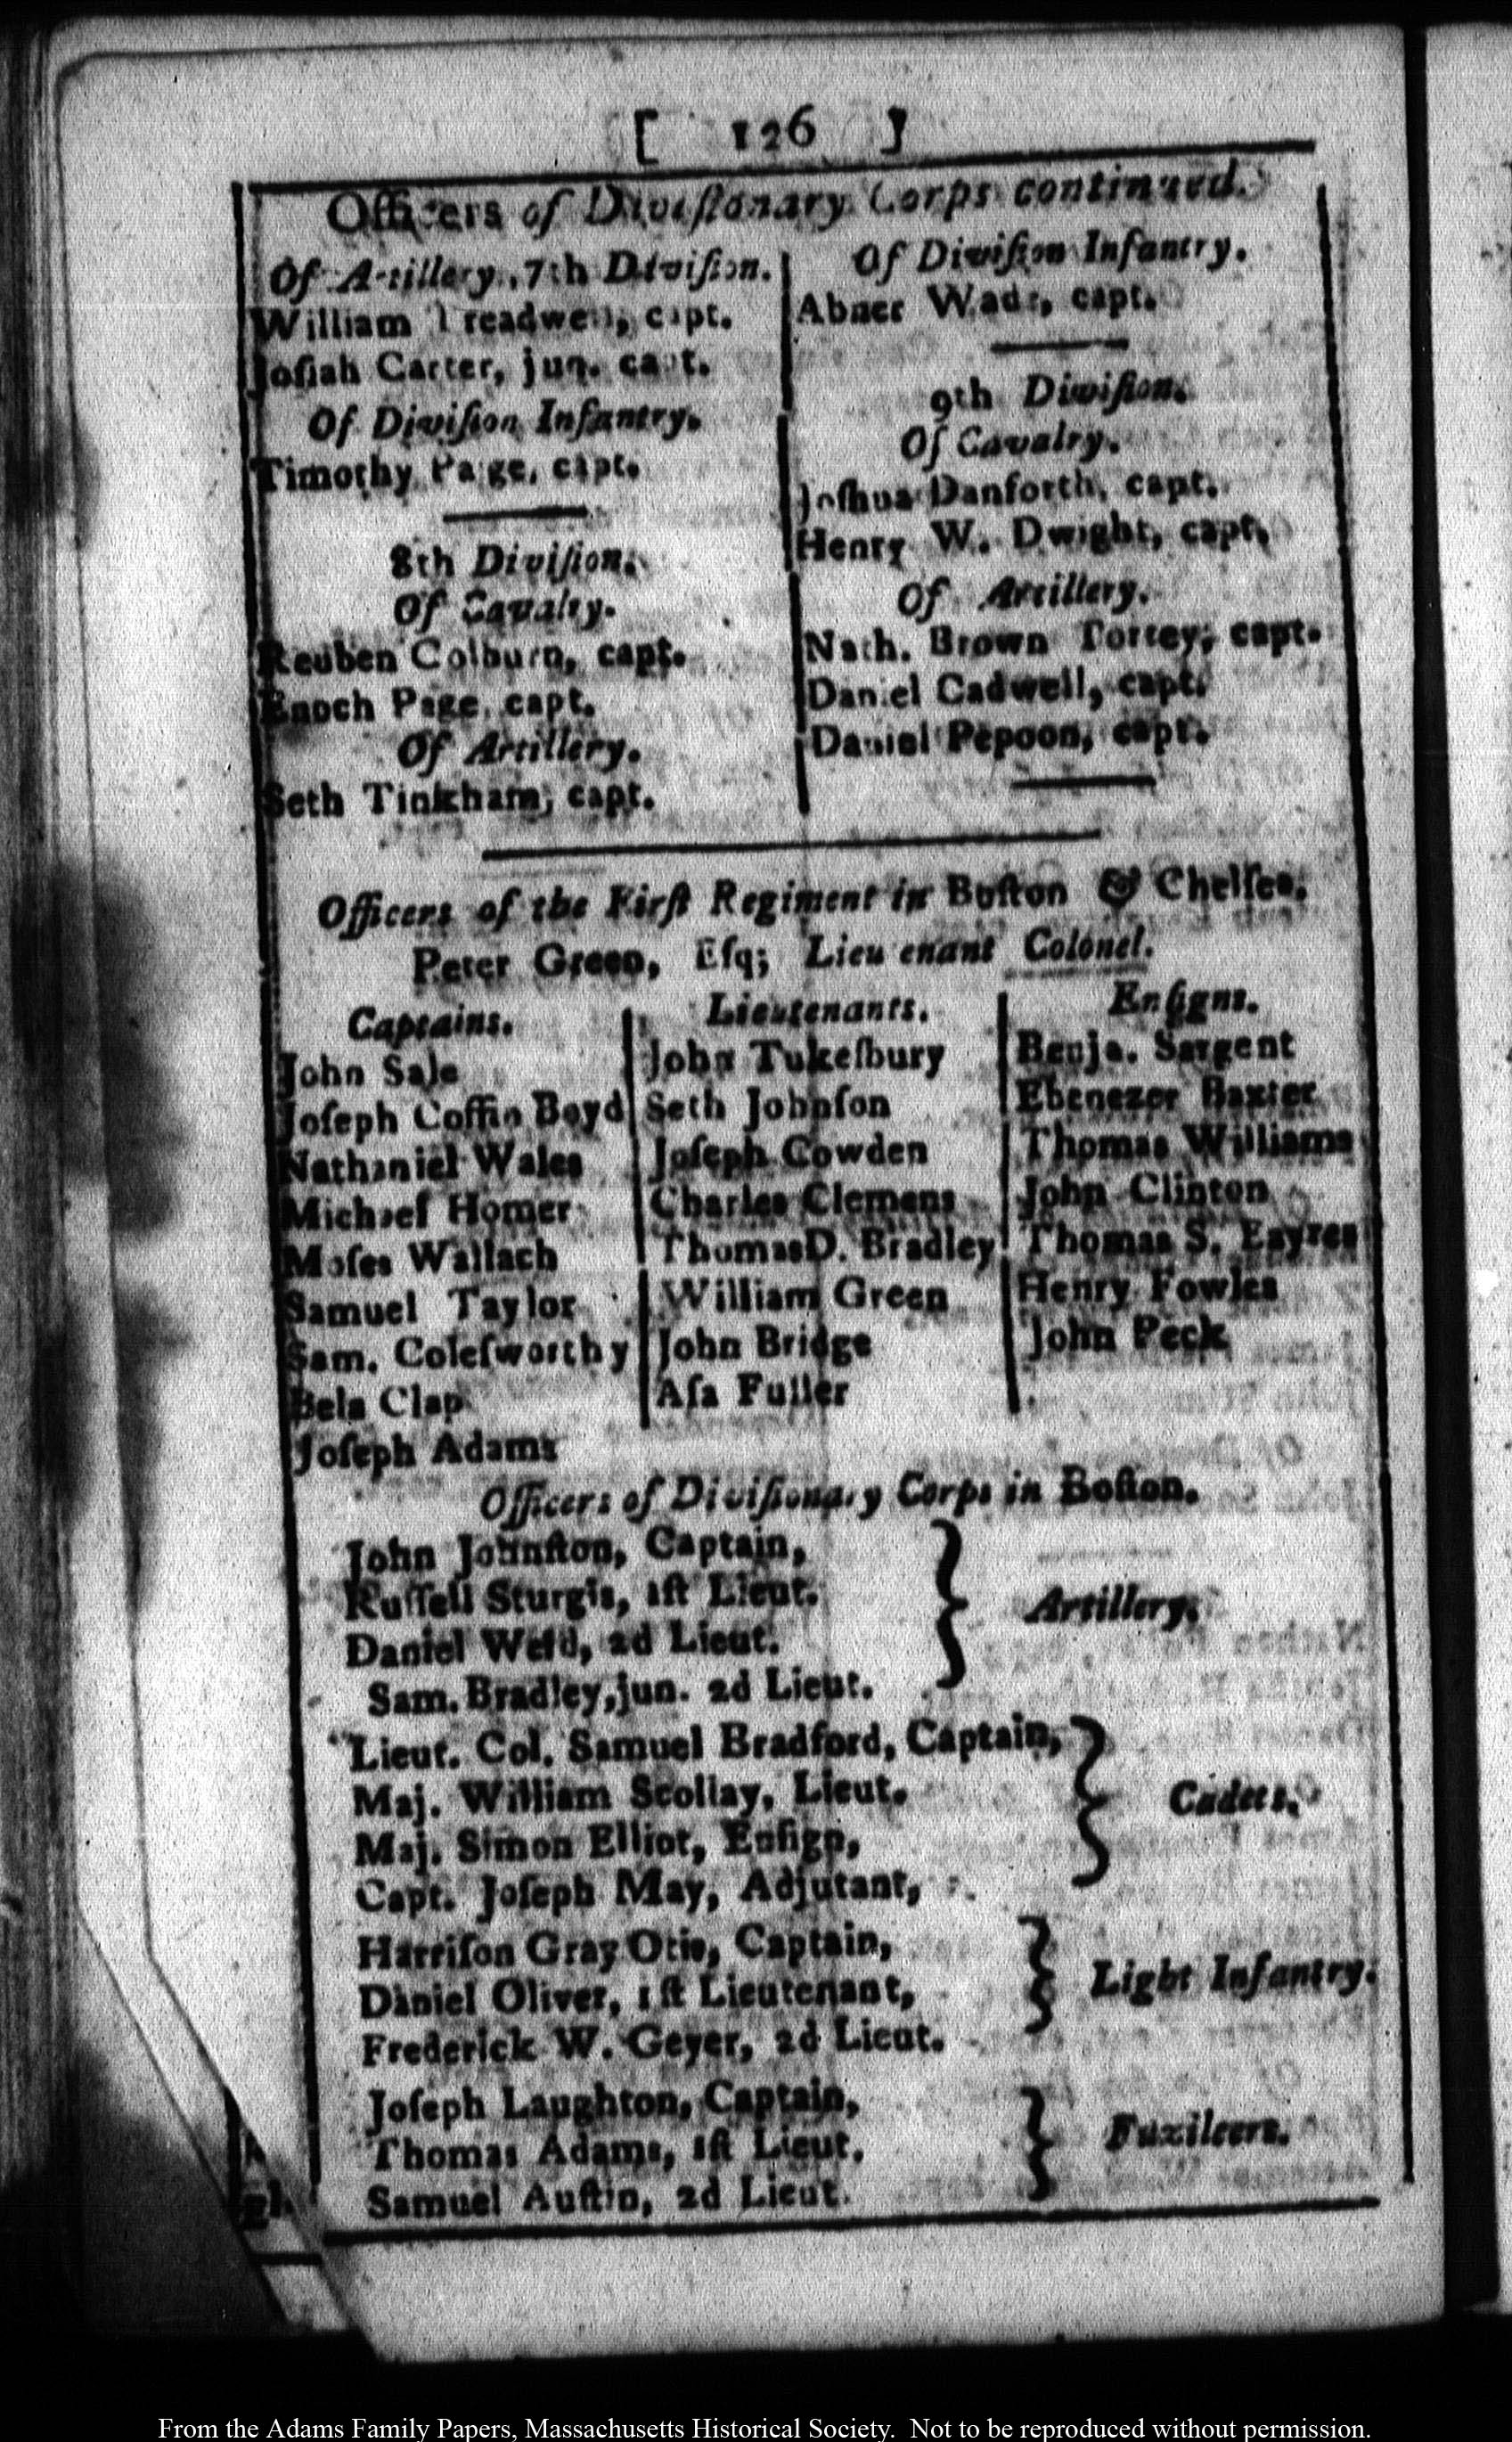 [ 126 ]
Officers of Diviſionary Corps continued.
Of Artillery, 7th Diviſion.
William Treadwell, capt.
Joſiah Carter, jun. capt.
Of Diviſion Infantry.
Timothy Paige, capt.
8th Diviſion.
Of Cavalry.
Reuben Colburn, capt.
Enoch Page, capt.
Of Artillery.
Seth Tinkham, capt.
Of Diviſion Infantry.
Abner Wade, capt.
9th Diviſion.
Of Cavalry.
Joſhua Danforth, capt.
Henry W. Dwight, capt.
Of Artillery.
Nath. Brown Torrey, capt.
Daniel Cadwell, capt.
Daniel Pepoon, capt.
Officers of the Firſt Regiment in Boſton & Chelſea.
Peter Green, Eſq; Lieutenant Colonel.
Captains.
John Sale
Joſeph Coffin Boyd
Nathaniel Wales
Michael Homer
Moſes Wallach
Samuel Taylor
Sam. Coleſworthy
Bela Clap
Joſeph Adams
Lieutenants.
John Tukeſbury
Seth Johnſon
Joſeph Cowden
Charles Clemens
Thomas D. Bradley
William Green
John Bridge
Aſa Fuller
Enſigns.
Benja. Sargent
Ebenezer Baxter
Thomas Williams
John Clinton
Thomas S. Eayres
Henry Fowles
John Peck
Officers of Diviſionary Corps in Boſton.
John Johnſton, Captain,
Ruſſell Sturgis, 1ſt Lieut.
Daniel Weld, 2d Lieut.
Sam. Bradley, jun. 2d Lieut.
Artillery.
Lieut. Col. Samuel Bradford, Captain,
Maj. William Scollay, Lieut.
Maj. Simon Elliot, Enſign,
Capt. Joſeph May, Adjutant,
Cadets.
Harriſon Gray Otis, Captain,
Daniel Oliver, 1ſt Lieutenant,
Frederick W. Geyer, 2d Lieut.
Light Infantry.
Joſeph Laughton, Captain,
Thomas Adams, 1ſt Lieut.
Samuel Auſtin, 2d Lieut.
Fuzileers.
From the Adams Family Papers, Massachusetts Historical Society. Not to be reproduced without permission.